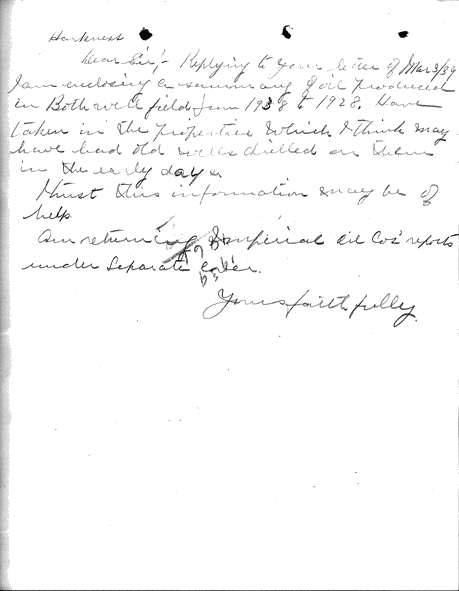 Harkness
Dear Sir;- Replying to your letter of Mar 3/39
I am enclosing a summary of oil produced
in Bothwell field from 1938 to 1928. Have
taken in the properties which I think may
have had old wells drilled on them
in the early days.
I trust this information may be of
help
Am returning Imperial Oil Cos' reports
under separate cover.
Yours faithfully.